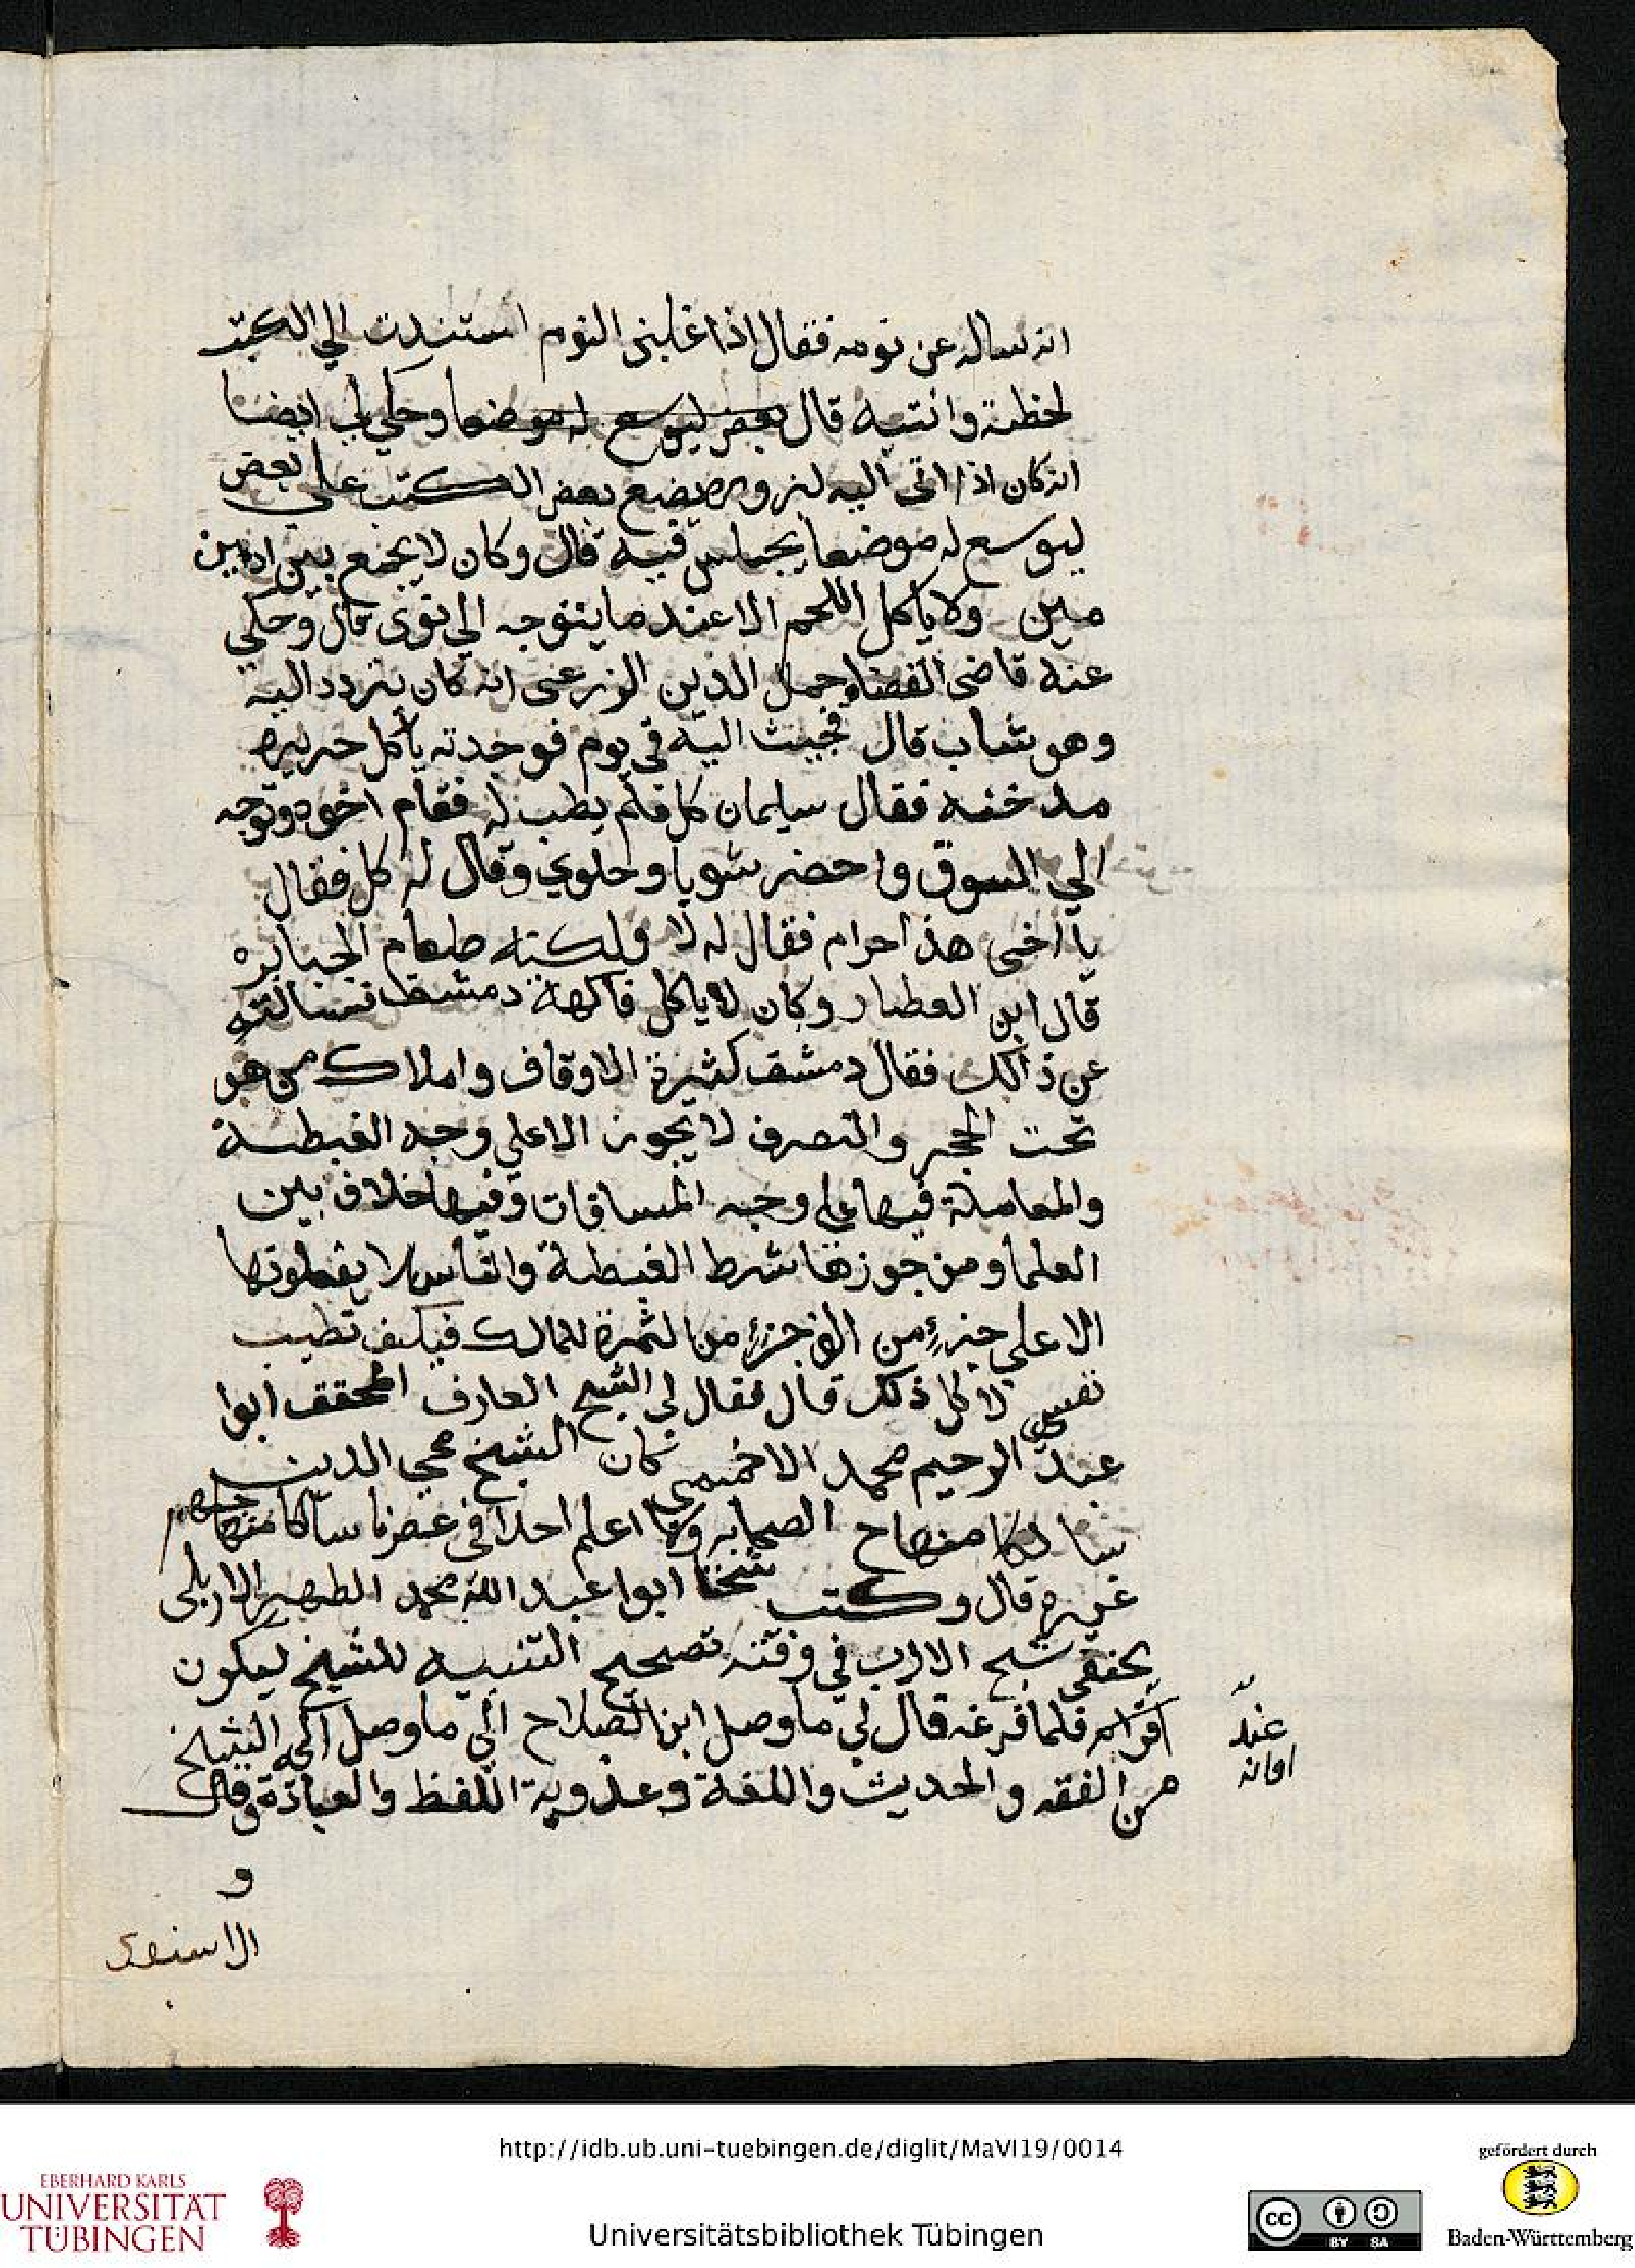 انه ساله عن نومه فقال اذا غلبني النوم استندت الي الكتب
لحظة وانتبه قال بعض ليوسع له موضعا وحكي لي ايضا
انه كان اذا اتى اليه لنزوره يضع بعض الكتب علي بعض
ليوسع له موضعا يجلس فيه قال وكان لا يجمع بين ادمين
مين ولا ياكل اللحم الا عند ما يتوجه الي نوى قال وحكي
عنه قاضي القضاه جمال الدين الزرعي انه كان يتردد اليه
وهو شاب قال فجيت اليه في يوم فوجدته ياكل حريره
مدخنه فقال سليمان كل فلم يطب له فقام اخوه وتوجه
الي السوق واحضر شويا وحلوي وقال له كل فقال
يا اخي هذا حرام فقال له لا ولكنه طعام الجبابره
قال ابن العطار وكان لا ياكل فاكهة دمشق فسالته
عن ذالك فقال دمشق كثيرة الاوقاف واملاك من هو
تحت الحجر والتصرف لا يجوز الا علي وجه الغبطة
والمعاملة فيها علي وجه المساقات وفيها خلاف بين
العلما ومن جوزها شرط الغبطة والناس لا يفعلونها
الا علي جزء من الف جزء من الثمرة للمالك فيكيف تطيب
نفسي لاكل ذلك قال فقال لي الشيخ العارف المحقق ابوا
عبد الرحيم محمد الاخميمي كان الشيخ محي الدين
سالكا منهاج الصحابه ولا اعلم احدا في عصرنا سالكا منهاجهم
غيره قال وكتب شيخنا ابوا عبد الله محمد الظهير الاربلي
الحنفي شيخ الادب في وقته تصحيح التنبيه للشيخ ليكون
اقرانه فلما فرغه قال لي ما وصل ابن الصلاح الي ما وصل اليه الشيخ
من الفقه والحديث واللغة وعذوبة اللفظ والعبادة وقال
عند
و
الاسنوي
http://idb.ub.uni-tuebingen.de/diglit/MaVI19/0014
gefördert durch
EBERHARD KARLS
UNIVERSITÄT
TÜBINGEN
Universitätsbibliothek Tübingen
cc
BY SA
Baden-Württemberg